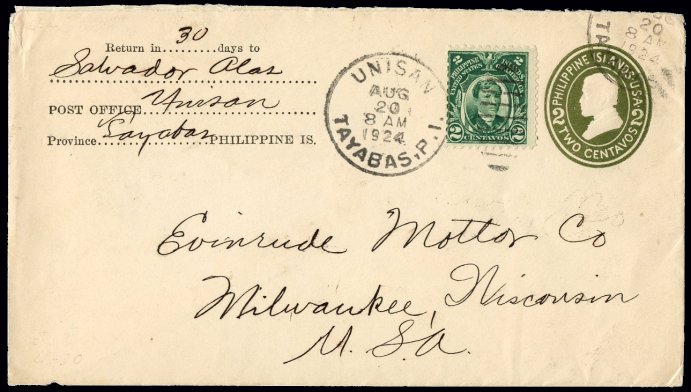 Return in 30 days to
Salvador Alas
POST OFFICE Unisan
Province Tayabas PHILIPPINE IS.
UNISAN
AUG
20
8 AM
1924
TAYABAS, P.I.
2 2
PHILIPPINE ISLANDS
UNITED STATES OF AMERICA
2 CENTAVOS 2
20
8 AM
1924
TA
PHILIPPINE ISLANDS·USA
2 TWO CENTAVOS 2
Evinrude Mottor Co
Milwaukee, Wisconsin
U. S. A.